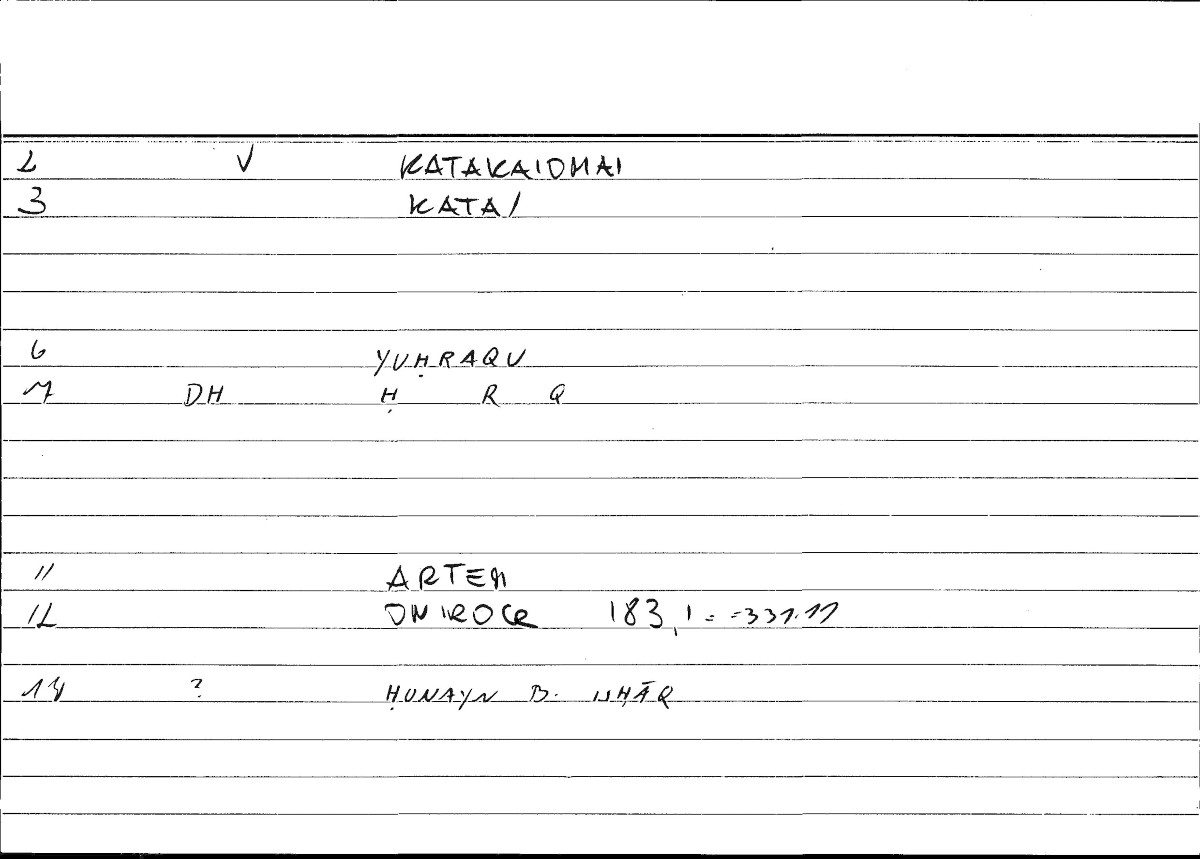 2 V KATAKAIOMAI
3 KATAI
6 YUḤRAQU
7 DH Ḥ R Q
11 ARTEM
12 ONIROCR 183,1 = -331.11
14 ? ḤUNAYN B. ISḤĀQ